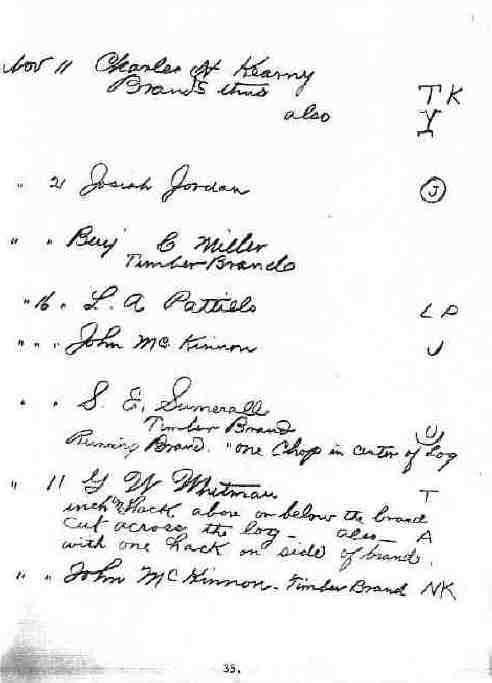 Nov 11 Charles H Kearny
Brands thus T K
also Y
" 21 Josiah Jordan J
" " Benj C Miller
Timber Brands
" 16 " L. A Pattiels L P
" " " John Mc Kinnon J
" " S. E, Sumerall
Timber Brand U
Running Brand. "one Chop in center of Log
" 11 G W Whitman T
inch " Hack above or below the brand
Cut across the log - also - A
with one hack on side of brand.
" " John Mc Kinnon - Timber Brand NK
35.